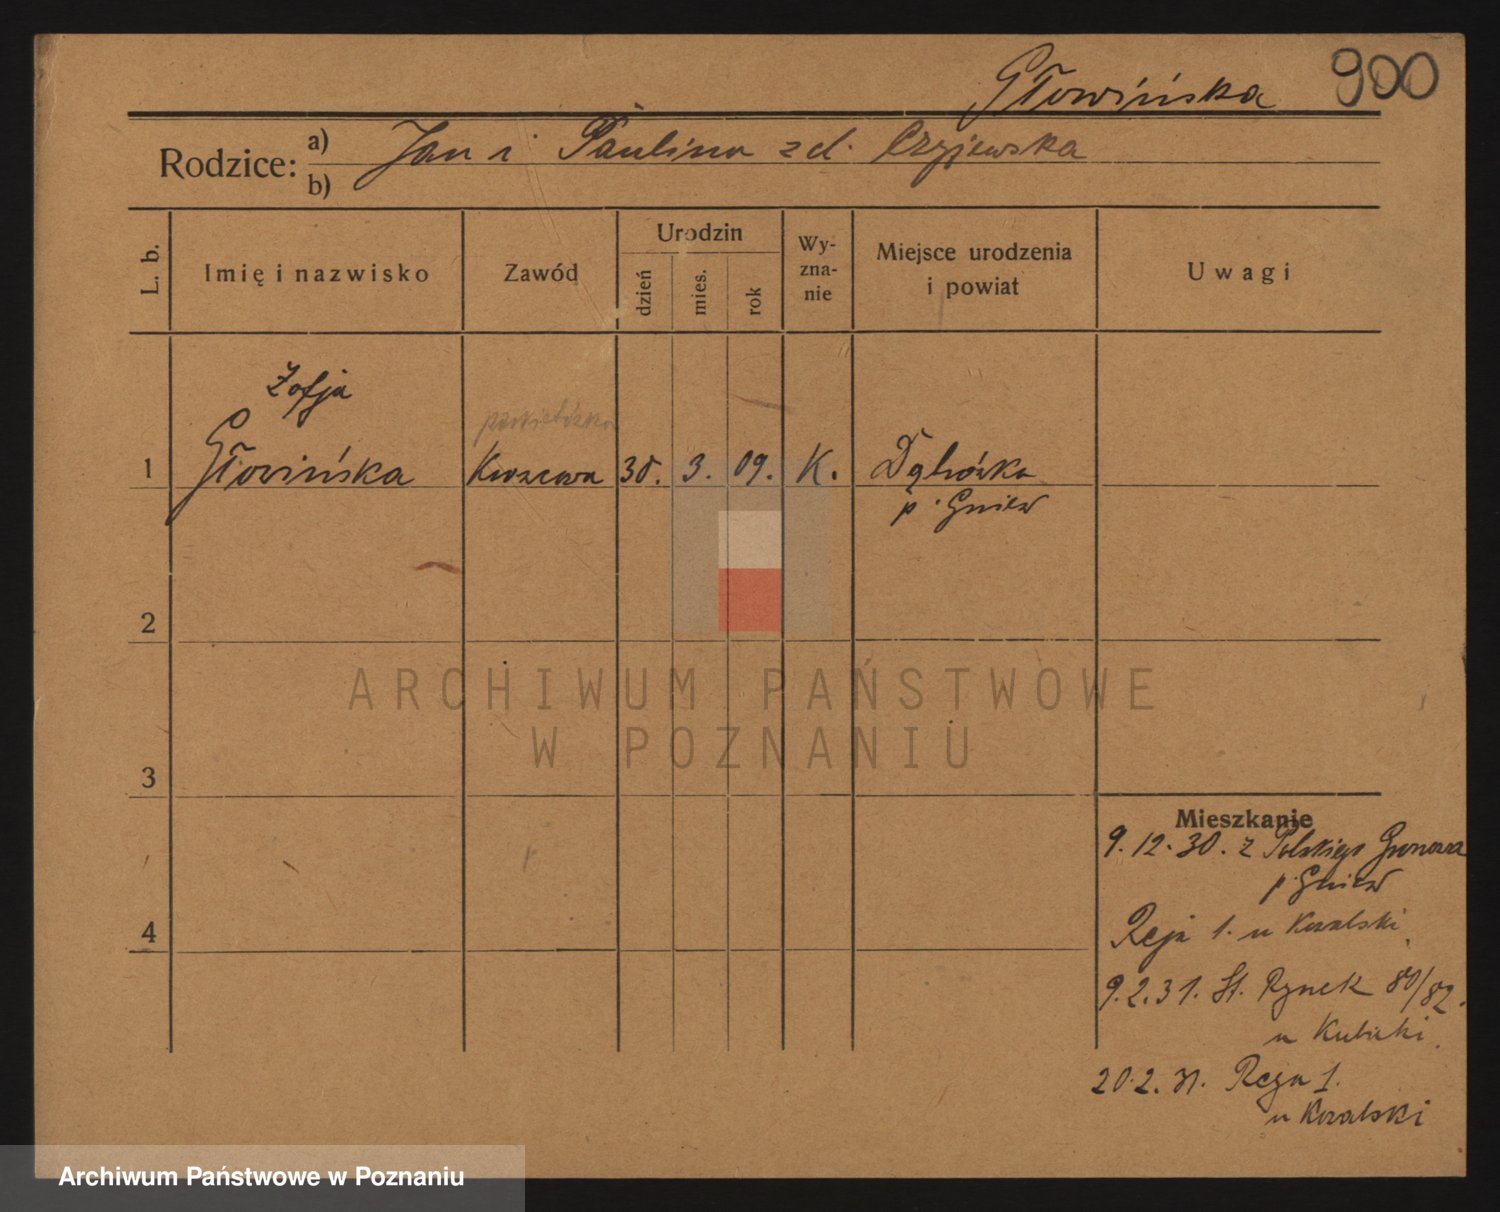 Głowińska 900
Rodzice: a) Jan i Paulina z d. Czyjewska
b)
L. b. Imię i nazwisko Zawód Urodzin dzień mies. rok Wy-zna-nie Miejsce urodzenia i powiat Uwagi
Zofja
1 Głowińska Krawcowa 30. 3. 09. K. Dąbrówka
p. Gniew
2
ARCHIWUM PAŃSTWOWE
W POZNANIU
3
Mieszkanie
9.12.30. z Polskiego Gronowa
p. Gniew
4 Reja 1. u Kowalski
9.2.31. St. Rynek 80/82.
u Kubicki.
20.2.31. Reja 1.
u Kowalski
Archiwum Państwowe w Poznaniu